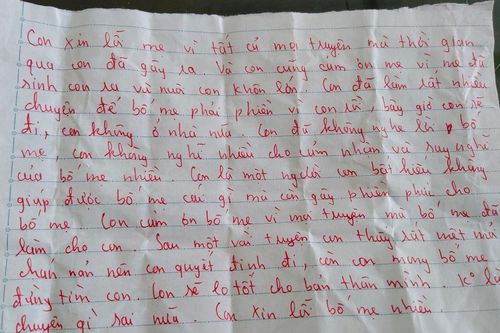 Con xin lỗi mẹ vì tất cả mọi truyện mà thời gian
qua con đã gây ra. Và con cũng cảm ơn mẹ vì mẹ đã
sinh con ra và nuôi con khôn lớn. Con đã làm rất nhiều
chuyện để bố mẹ phải phiền vì con rồi, bây giờ con sẽ
đi, con không ở nhà nữa. Con đã không nghe lời bố
mẹ, con không nghĩ nhiều cho cảm nhận và suy nghĩ
của bố mẹ nhiều. Con là một người con bất hiếu không
giúp được bố mẹ cái gì mà còn gây phiền phức cho
bố mẹ. Con cảm ơn bố mẹ vì mọi truyện mà bố mẹ đã
làm cho con. Sau một vài truyện con thấy rất mệt mỏi
chán nản nên con quyết định đi, con mong bố mẹ
đừng tìm con. Con sẽ lo tốt cho bản thân mình. K° làm
chuyện gì sai nữa. Con xin lỗi bố mẹ nhiều.